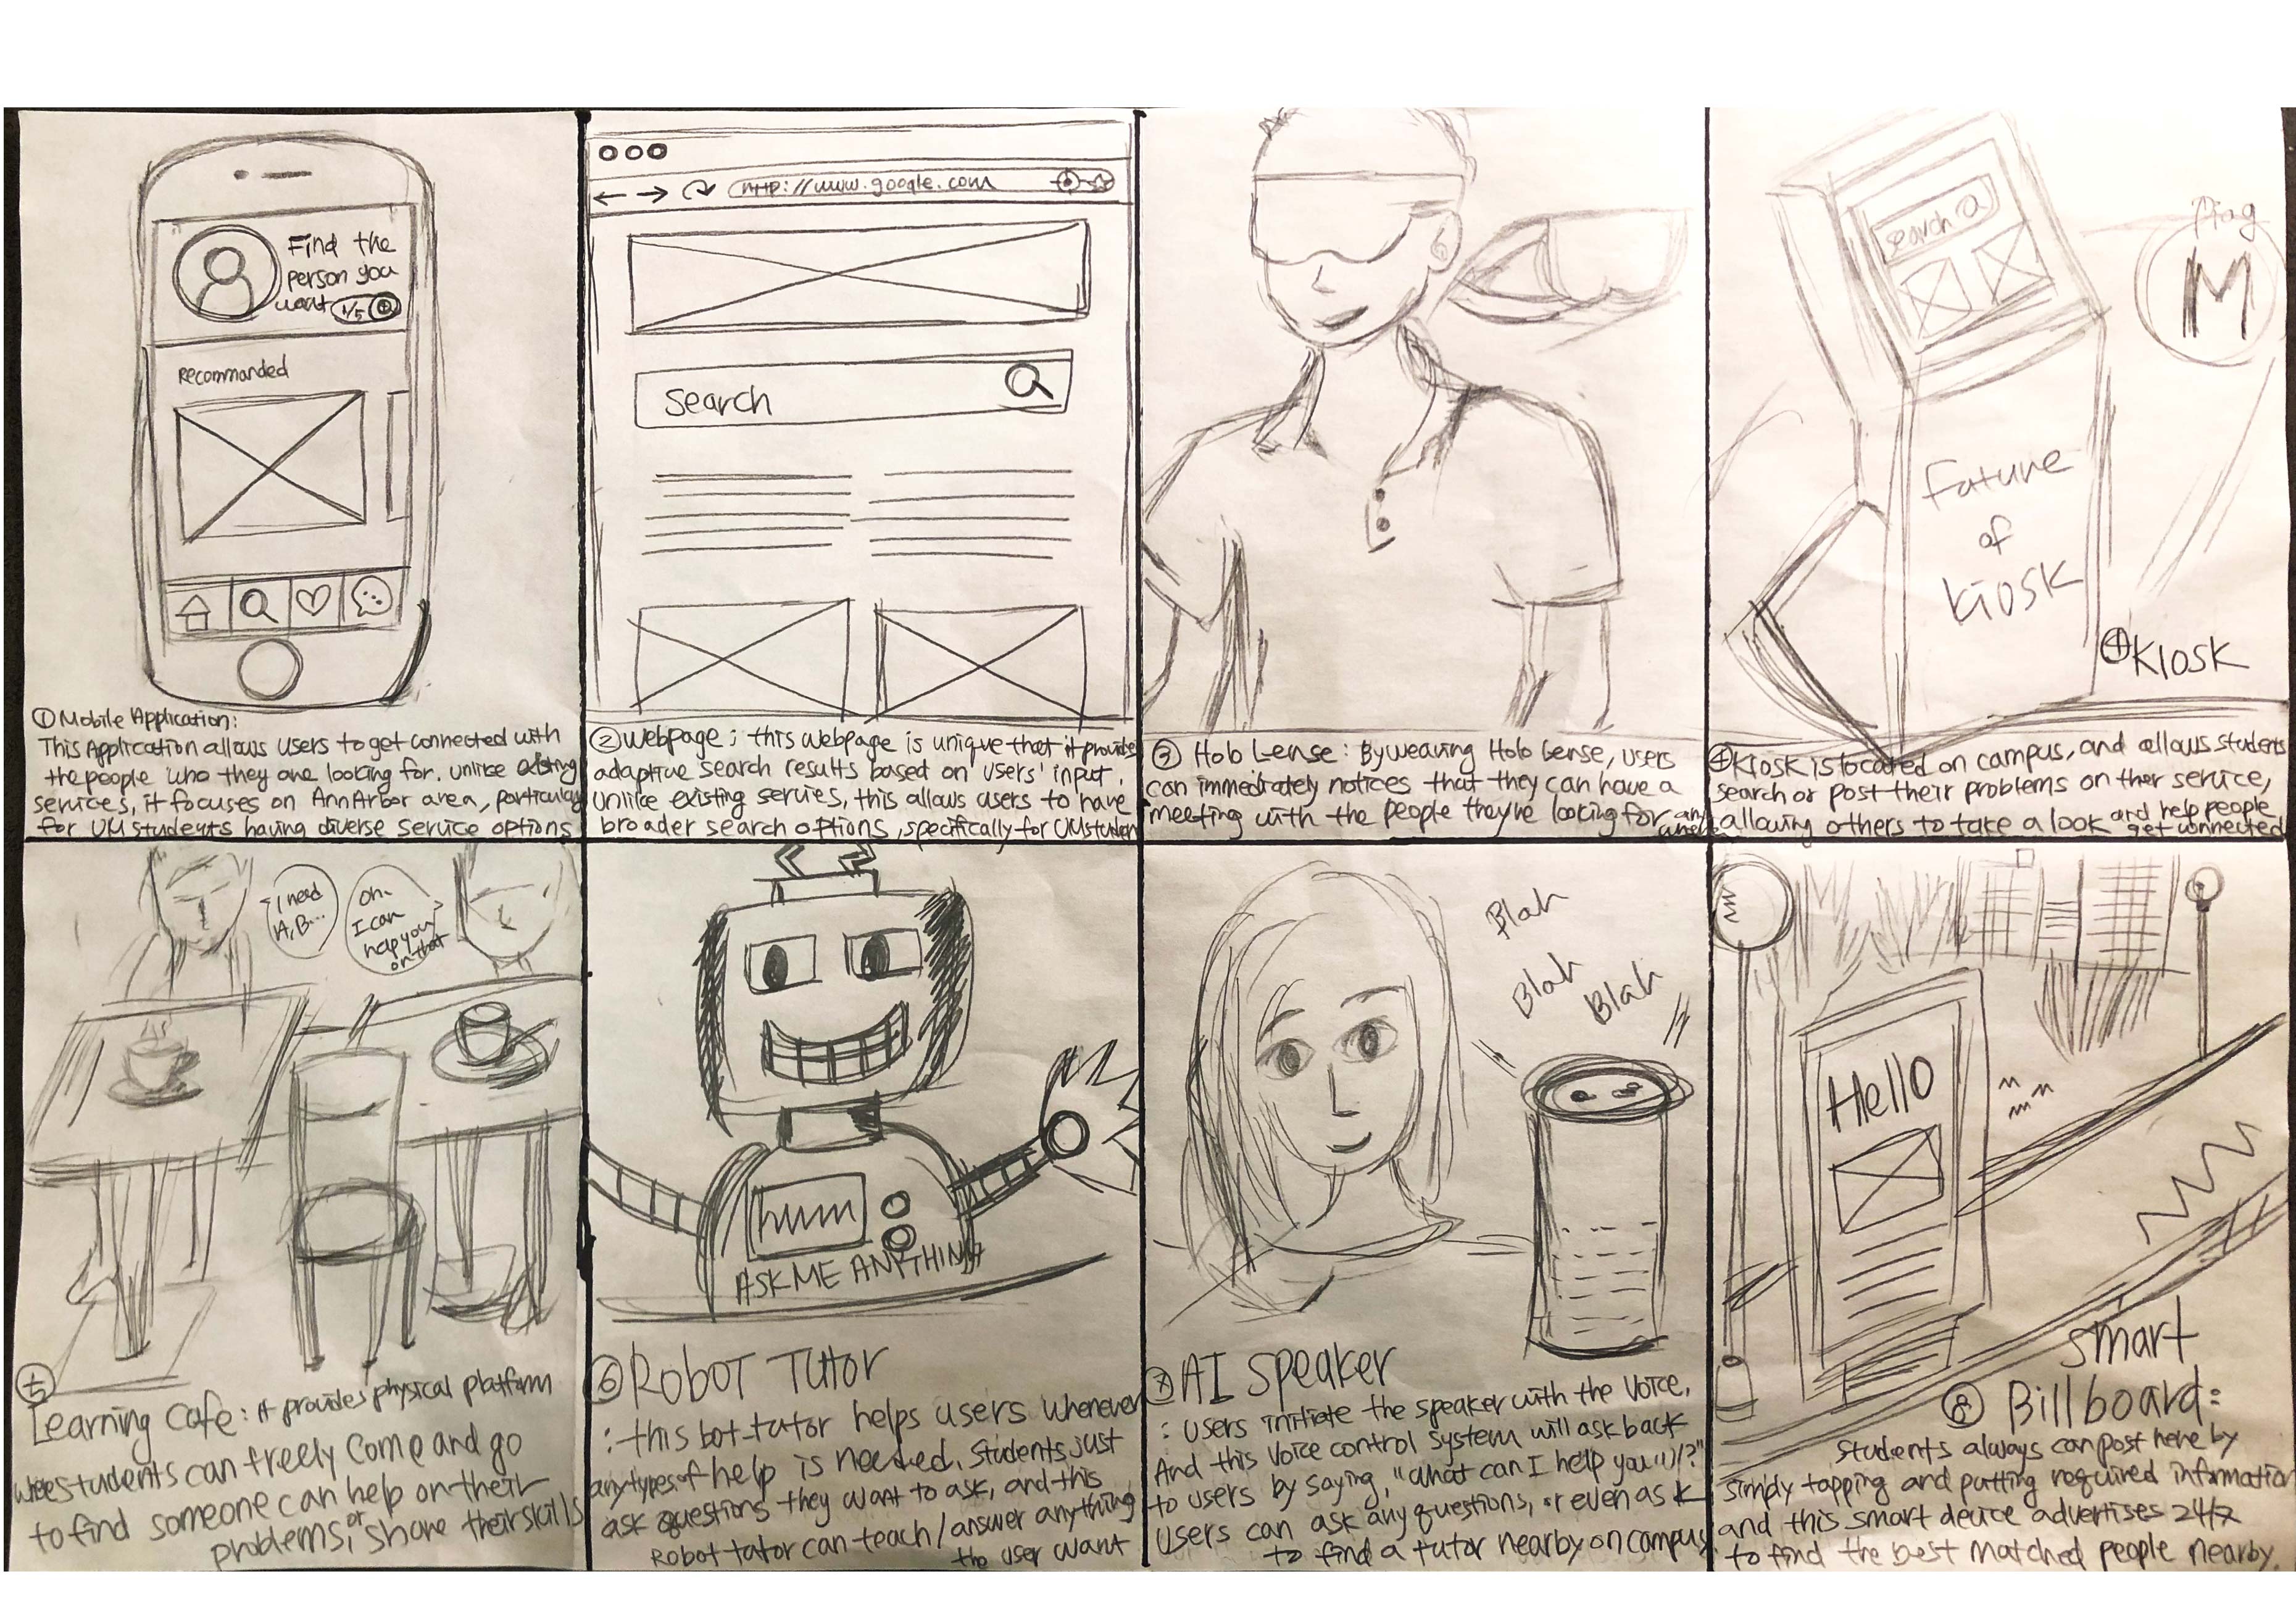 Find the
person you
want 1/5
Recommanded
① Mobile Application:
This Application allows users to get connected with
the people who they are looking for. unlike existing
services, it focuses on Ann Arbor area, particulary
for UM students having diverse service options
http://www.google.com
Search
② Webpage ; this webpage is unique that it provides
adaptive search results based on users' input.
Unlike existing servies, this allows users to have
broader search options, specifically for UM student
③ Holo Lense: By weaving Holo Lense, users
can immediately notices that they can have a
meeting with the people they're looking for any
where
Search
M
Future
of
kiosk
④ KIOSK
④ KIOSK is located on campus, and allows students
search or post their problems on ther service,
allowing others to take a look and help people
get connected
I need
A, B...
Oh-
I can
help you
on that
⑤
Learning Cafe: it provides physical platform
where students can freely come and go
to find someone can help on their
problems, or share their skills
hum
ASK ME ANYTHING
⑥ ROBOT TUTOR
: this bot-tutor helps users whenever
any types of help is needed. Students just
ask questions they want to ask, and this
Robot tutor can teach/answer anything
the user want
Blah
Blah
Blah
⑦ AI Speaker
: users initiate the speaker with the voice,
And this voice control system will ask back
to users by saying, "what can I help you w/?"
Users can ask any questions, or even ask
to find a tutor nearby on campus
Hello
smart
⑧ Billboard:
Students always can post here by
simply tapping and putting required information
and this smart device advertises 24/7
to find the best matched people nearby.